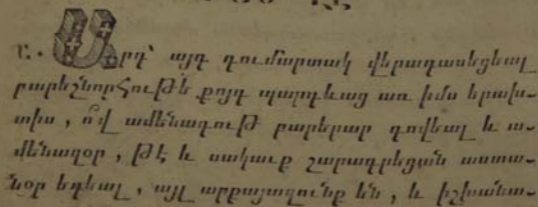 Ը. Արդ՝ այդ գումարտակ վերադասեցեալ
բարեշնորհութե քոյդ պարգևաց առ իմս երախ-
տիս, ո՛վ ամենագութ բարերար գովեալ և ա-
մենազօր, թէ և սակաւք շարադրեցան աստա-
նօր եդեալ, այլ արքայազունք են, և իշխանա-